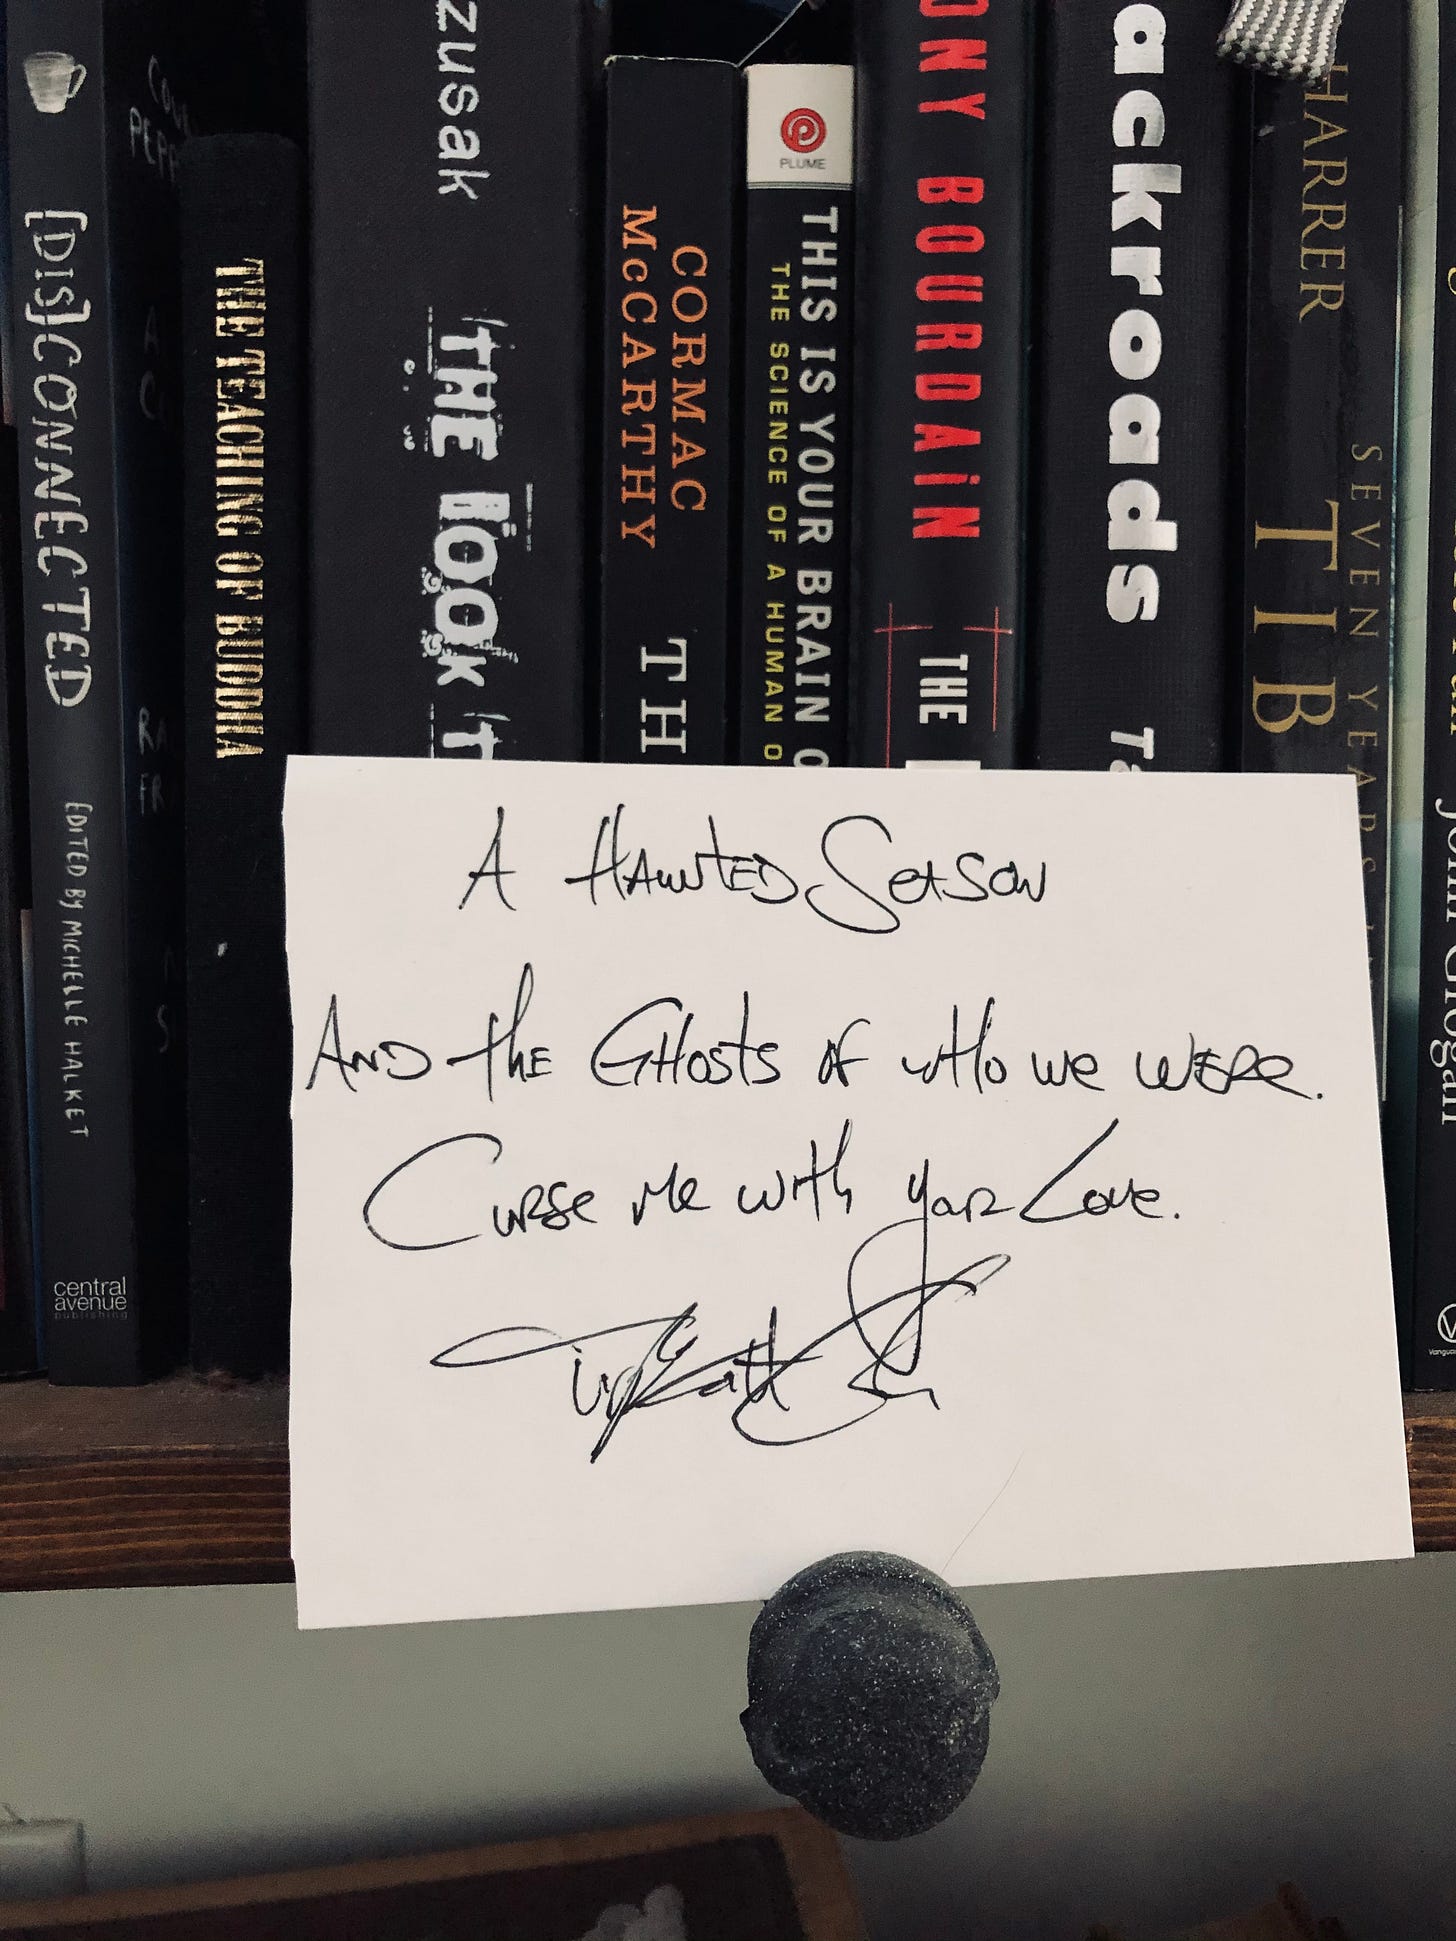 [DIS]CONNECTED
EDITED BY MICHELLE HALKET
central
avenue
publishing
THE TEACHING OF BUDDHA
zusak
THE BOOK T
CORMAC
McCARTHY
TH
PLUME
THIS IS YOUR BRAIN O
THE SCIENCE OF A HUMAN O
ONY BOURDAiN
THE
ackroads
HARRER
SEVEN YEARS
TIB
John Grogan
A HAUNTED SEASON
AND THE GHOSTS OF WHO WE WERE.
CURSE ME WITH YOUR LOVE.